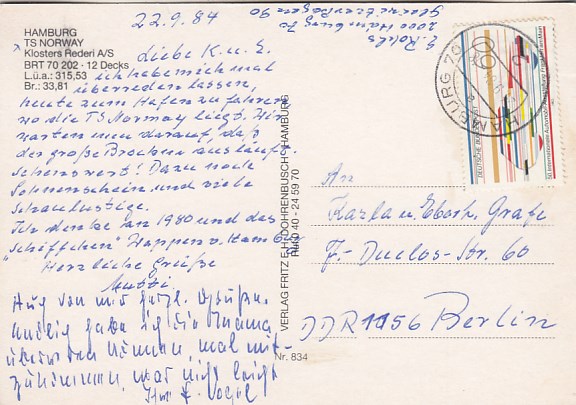 22.9.84
HAMBURG
TS NORWAY
Klosters Rederi A/S
BRT 70 202 · 12 Decks
L.ü.a.: 315,53
Br.: 33,81
Liebe K. u. E.
ich habe mich mal
überreden lassen,
heute zum Hafen zu fahren
wo die TS. Norway liegt. Wir
warten nun darauf, daß
der große Brocken ausläuft.
Sehenswert! Dazu noch
Sonnenschein und viele
Schaulustige.
Ich denke an 1980 und das
"Schiffchen" Kappeln
Herzliche Grüße
Mutti
Auch von mir herzl. Grüße.
habe ich die Mama
überreden können, mal mit-
zukommen, war nicht leicht
Ihr F. Vogel
2000 Hamburg 70
HAMBURG 70
DEUTSCHE BUNDESPOST
60
VERLAG FRITZ E.H. DOHRENBUSCH · HAMBURG
RUF 0 40 - 24 59 70
Nr. 834
An
Karla u. Eberh. Grafe
J.-Duclos-Str. 60
DDR 1156 Berlin